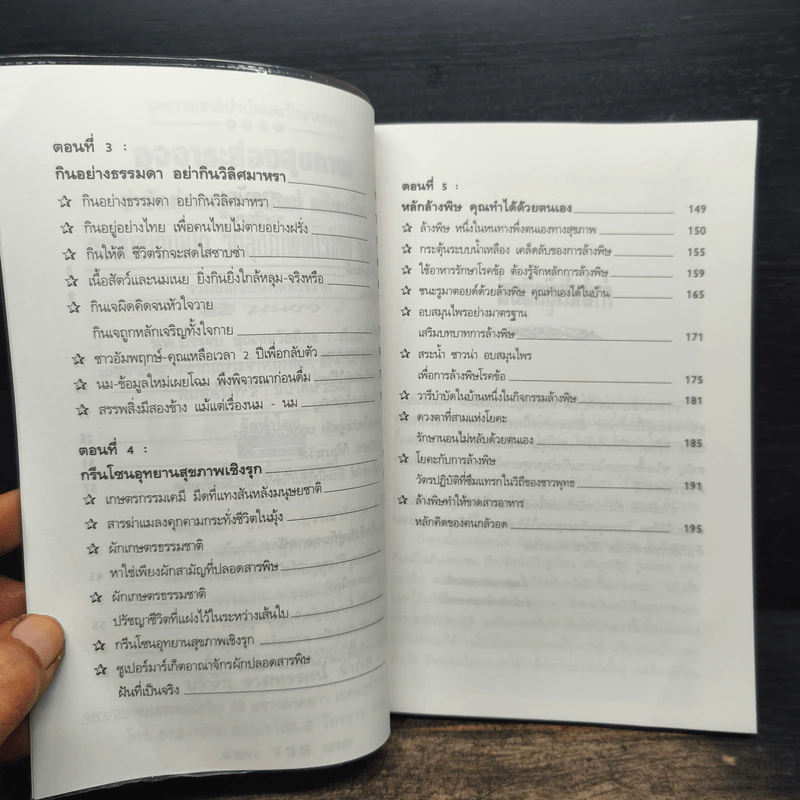 ตอนที่ 3 :
กินอย่างธรรมดา อย่ากินวิลิศมาหรา
☆ กินอย่างธรรมดา อย่ากินวิลิศมาหรา
☆ กินอยู่อย่างไทย เพื่อคนไทยไม่ตายอย่างฝรั่ง
☆ กินให้ดี ชีวิตรักจะสดใสซาบซ่า
☆ เนื้อสัตว์และนมเนย ยิ่งกินยิ่งใกล้หลุม-จริงหรือ
☆ กินเจผิดคิดจนหัวใจวาย
กินเจถูกหลักเจริญทั้งใจกาย
☆ ชาวอัมพฤกษ์-คุณเหลือเวลา 2 ปีเพื่อกลับตัว
☆ นม-ข้อมูลใหม่เผยโฉม พึงพิจารณาก่อนดื่ม
☆ สรรพสิ่งมีสองข้าง แม้แต่เรื่องนม - นม
ตอนที่ 4 :
กรีนโซนอุทยานสุขภาพเชิงรุก
☆ เกษตรกรรมเคมี มีดที่แทงสันหลังมนุษยชาติ
☆ สารฆ่าแมลงคุกคามกระทั่งชีวิตในมุ้ง
☆ ผักเกษตรธรรมชาติ
หาใช่เพียงผักสามัญที่ปลอดสารพิษ
☆ ผักเกษตรธรรมชาติ
ปรัชญาชีวิตที่แฝงไว้ในระหว่างเส้นใบ
☆ กรีนโซนอุทยานสุขภาพเชิงรุก
☆ ซูเปอร์มาร์เก็ตอาณาจักรผักปลอดสารพิษ
ฝันที่เป็นจริง
ตอนที่ 5 :
หลักล้างพิษ คุณทำได้ด้วยตนเอง 149
☆ ล้างพิษ หนึ่งในหนทางพึ่งตนเองทางสุขภาพ 150
☆ กระตุ้นระบบน้ำเหลือง เคล็ดลับของการล้างพิษ 155
☆ ใช้อาหารรักษาโรคข้อ ต้องรู้จักหลักการล้างพิษ 159
☆ ชนะรูมาตอยด์ด้วยล้างพิษ คุณทำเองได้ในบ้าน 165
☆ อบสมุนไพรอย่างมาตรฐาน
เสริมบทบาทการล้างพิษ 171
☆ สระน้ำ ซาวน่า อบสมุนไพร
เพื่อการล้างพิษโรคข้อ 175
☆ วารีบำบัดในบ้านหนึ่งในกิจกรรมล้างพิษ 181
☆ ดวงตาที่สามแห่งโยคะ
รักษานอนไม่หลับด้วยตนเอง 185
☆ โยคะกับการล้างพิษ
วัตรปฏิบัติที่ซึมแทรกในวิถีของชาวพุทธ 191
☆ ล้างพิษทำให้ขาดสารอาหาร
หลักคิดของคนกลัวอด 195